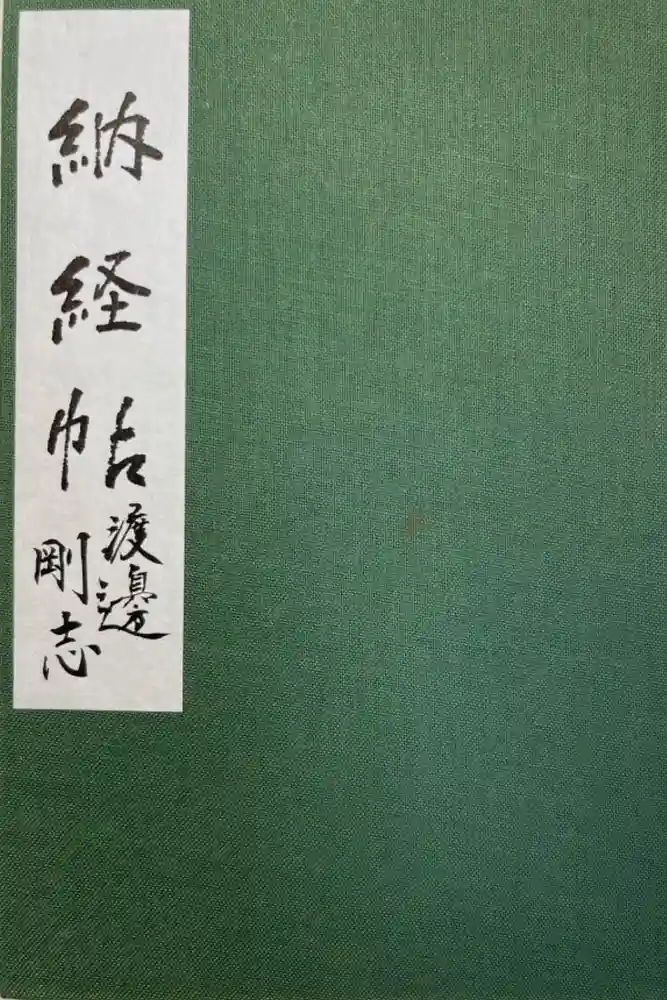 納経帖
渡邊
剛志